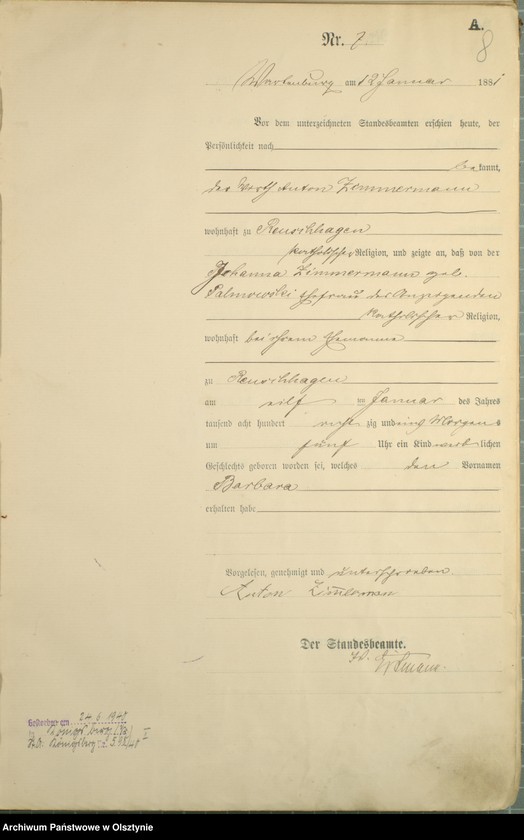 A.
8
Nr. 7.
Wartenburg am 12 Januar 1881
Vor dem unterzeichneten Standesbeamten erschien heute, der
Persönlichkeit nach
bekannt,
der Wirth Anton Zimmermann
wohnhaft zu Reuschhagen
katholischer Religion, und zeigte an, daß von der
Johanna Zimmermann geb.
Palmowski Ehefrau des Anzeigenden
katholischer Religion,
wohnhaft bei ihrem Ehemanne
zu Reuschhagen
am eilf ten Januar des Jahres
tausend acht hundert acht zig und eins Morgens
um fünf Uhr ein Kind weiblichen
Geschlechts geboren worden sei, welches den Vornamen
Barbara
erhalten habe
Vorgelesen, genehmigt und unterschrieben
Anton Zimmerman
Der Standesbeamte.
Gestorben am 24.
Königsberg
Archiwum Państwowe w Olsztynie